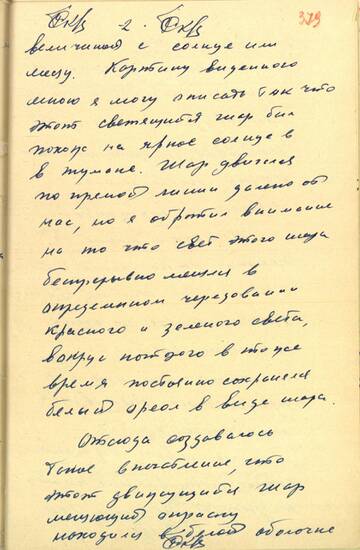 2.
379
величиной с солнце или
месяц. Картину виденного
мною я могу описать так что
этот светящийся шар был
похож на яркое солнце в
в тумане. Шар двигался
по прямой линии далеко от
нас, но я обратил внимание
на то что свет этого шара
беспрерывно менялся в
определенном чередовании
красного и зеленого света,
вокруг которого в то же
время постоянно сохранялся
белый ореол в виде шара.
Отсюда создавалось
такое впечатление, что
этот движущийся шар
меняющий окраску
находился в белой оболочке